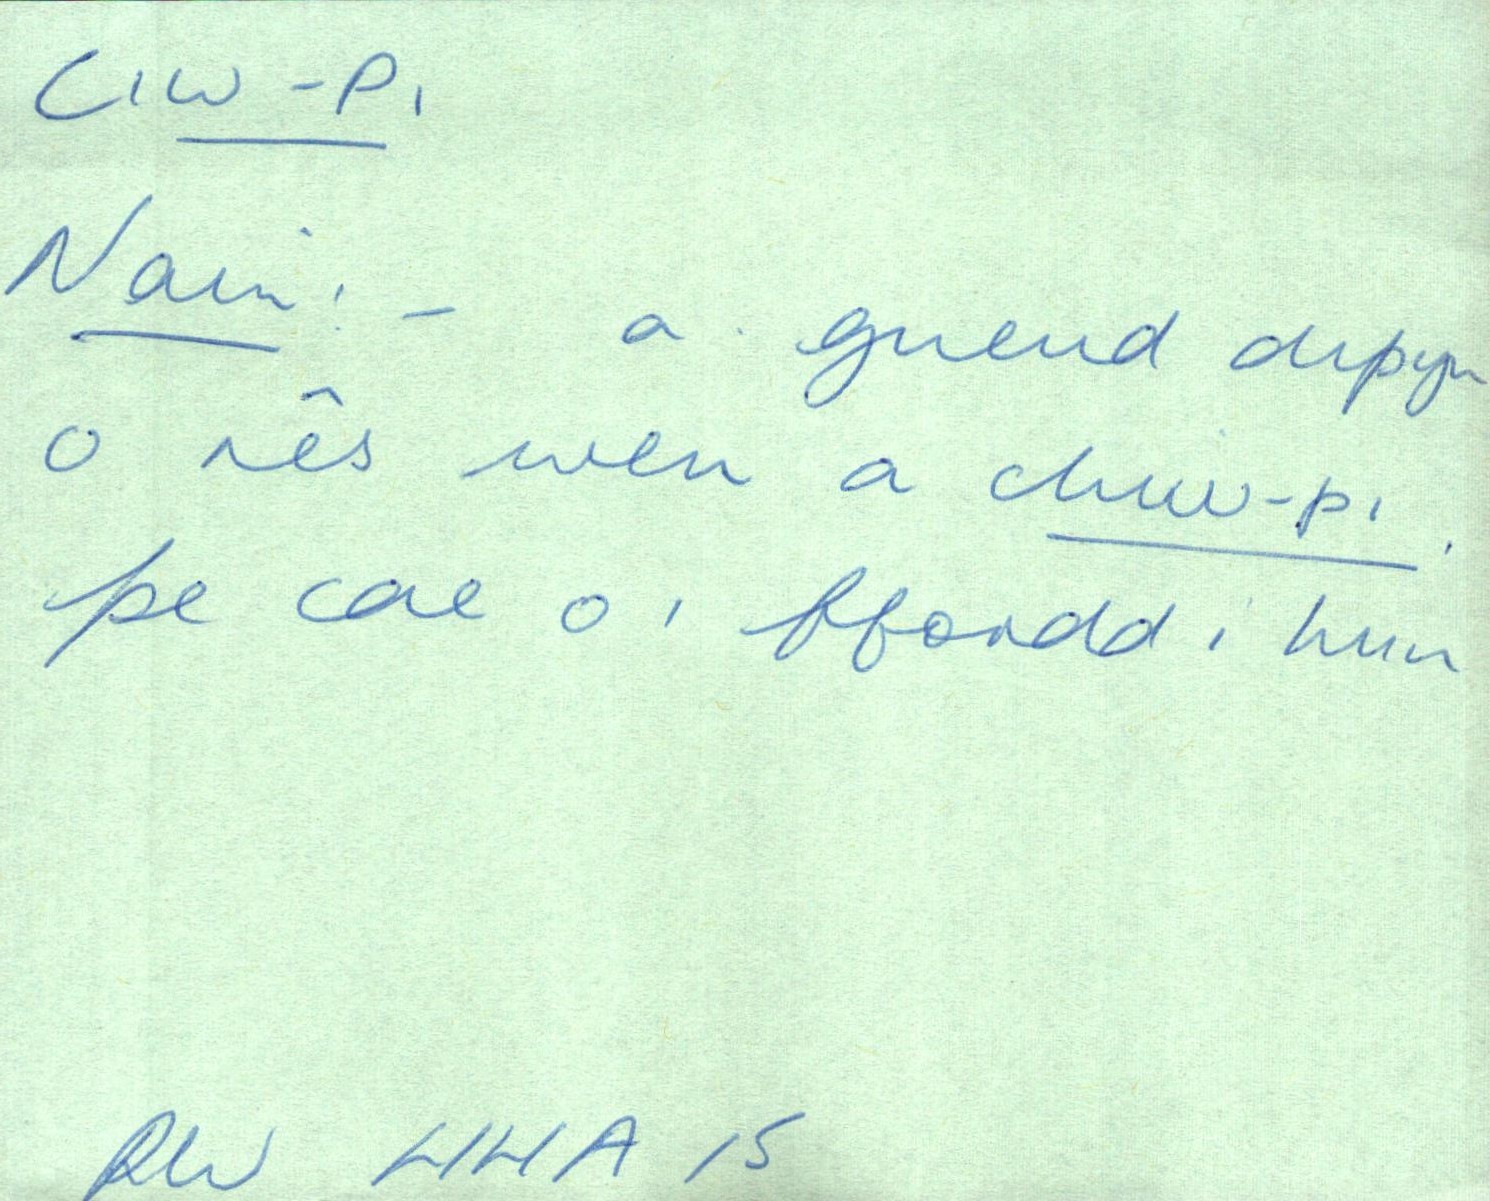 CIW-PI
Nain:- a gneud dipyn
o rês wen a chiw-pi.
pe cae o i ffordd i hun
RW HHA 15